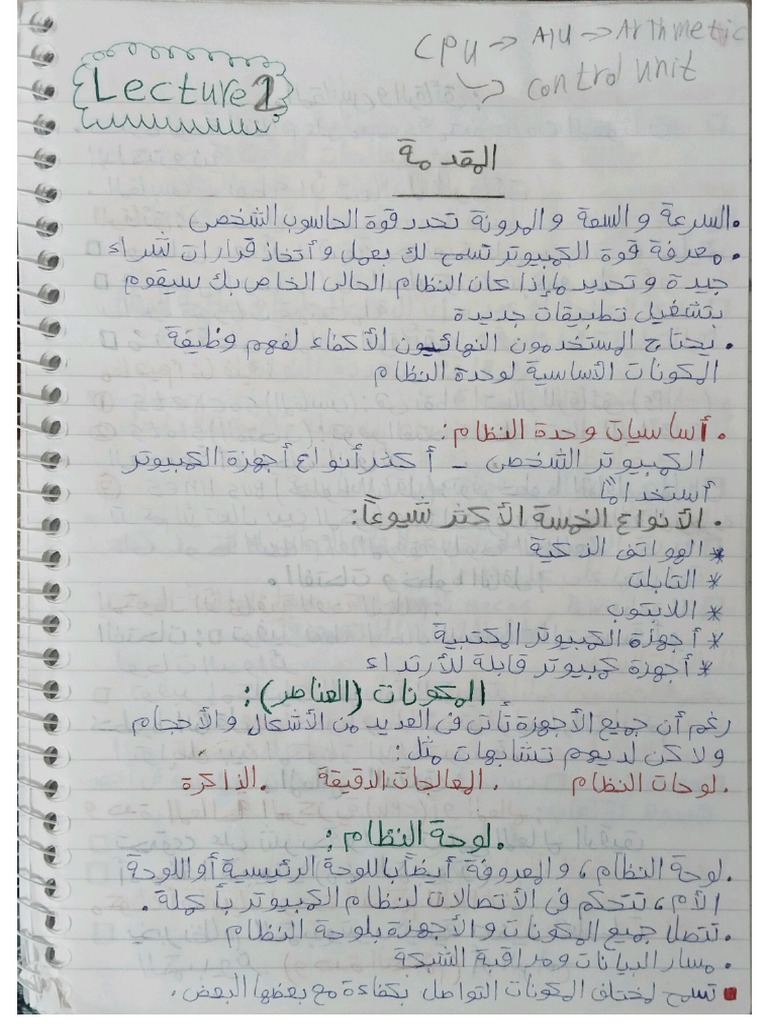 CPU → AlU → Arthmetic
↳ control unit
Lecture 1
المقدمة
• السرعة والسعة والمرونة تحدد قوة الحاسوب الشخصى
• معرفة قوة الكمبيوتر تسمح لك بعمل وأتخاذ قرارات شراء
جيدة وتحديد ماإذا كان النظام الحالى الخاص بك سيقوم
بتشغيل تطبيقات جديدة
• يحتاج المستخدمون النهائيون الأكفاء لفهم وظيفة
المكونات الأساسية لوحدة النظام
• أساسيات وحدة النظام:
الكمبيوتر الشخصى - أكثر أنواع أجهزة الكمبيوتر
أستخدامًا
• الأنواع الخمسة الأكثر شيوعاً:
* الهواتف الذكية
* التابلت
* اللابتوب
* أجهزة الكمبيوتر المكتبية
* أجهزة كمبيوتر قابلة للأرتداء
المكونات (العناصر):
رغم أن جميع الأجهزة تأتى فى العديد من الأشكال والأحجام
ولاكن لديهم تشابهات مثل:
• لوحات النظام • المعالجات الدقيقة • الذاكرة
• لوحة النظام:
• لوحة النظام، والمعروفة أيضاً باللوحة الرئيسية أواللوحة
الأم، تتحكم فى الأتصالات لنظام الكمبيوتر بأكملة.
• تتصل جميع المكونات والأجهزة بلوحة النظام
• مسار البيانات ومراقبة الشبكة
■ تسمح لمختلف المكونات التواصل بكفاءة مع بعظها البعض.